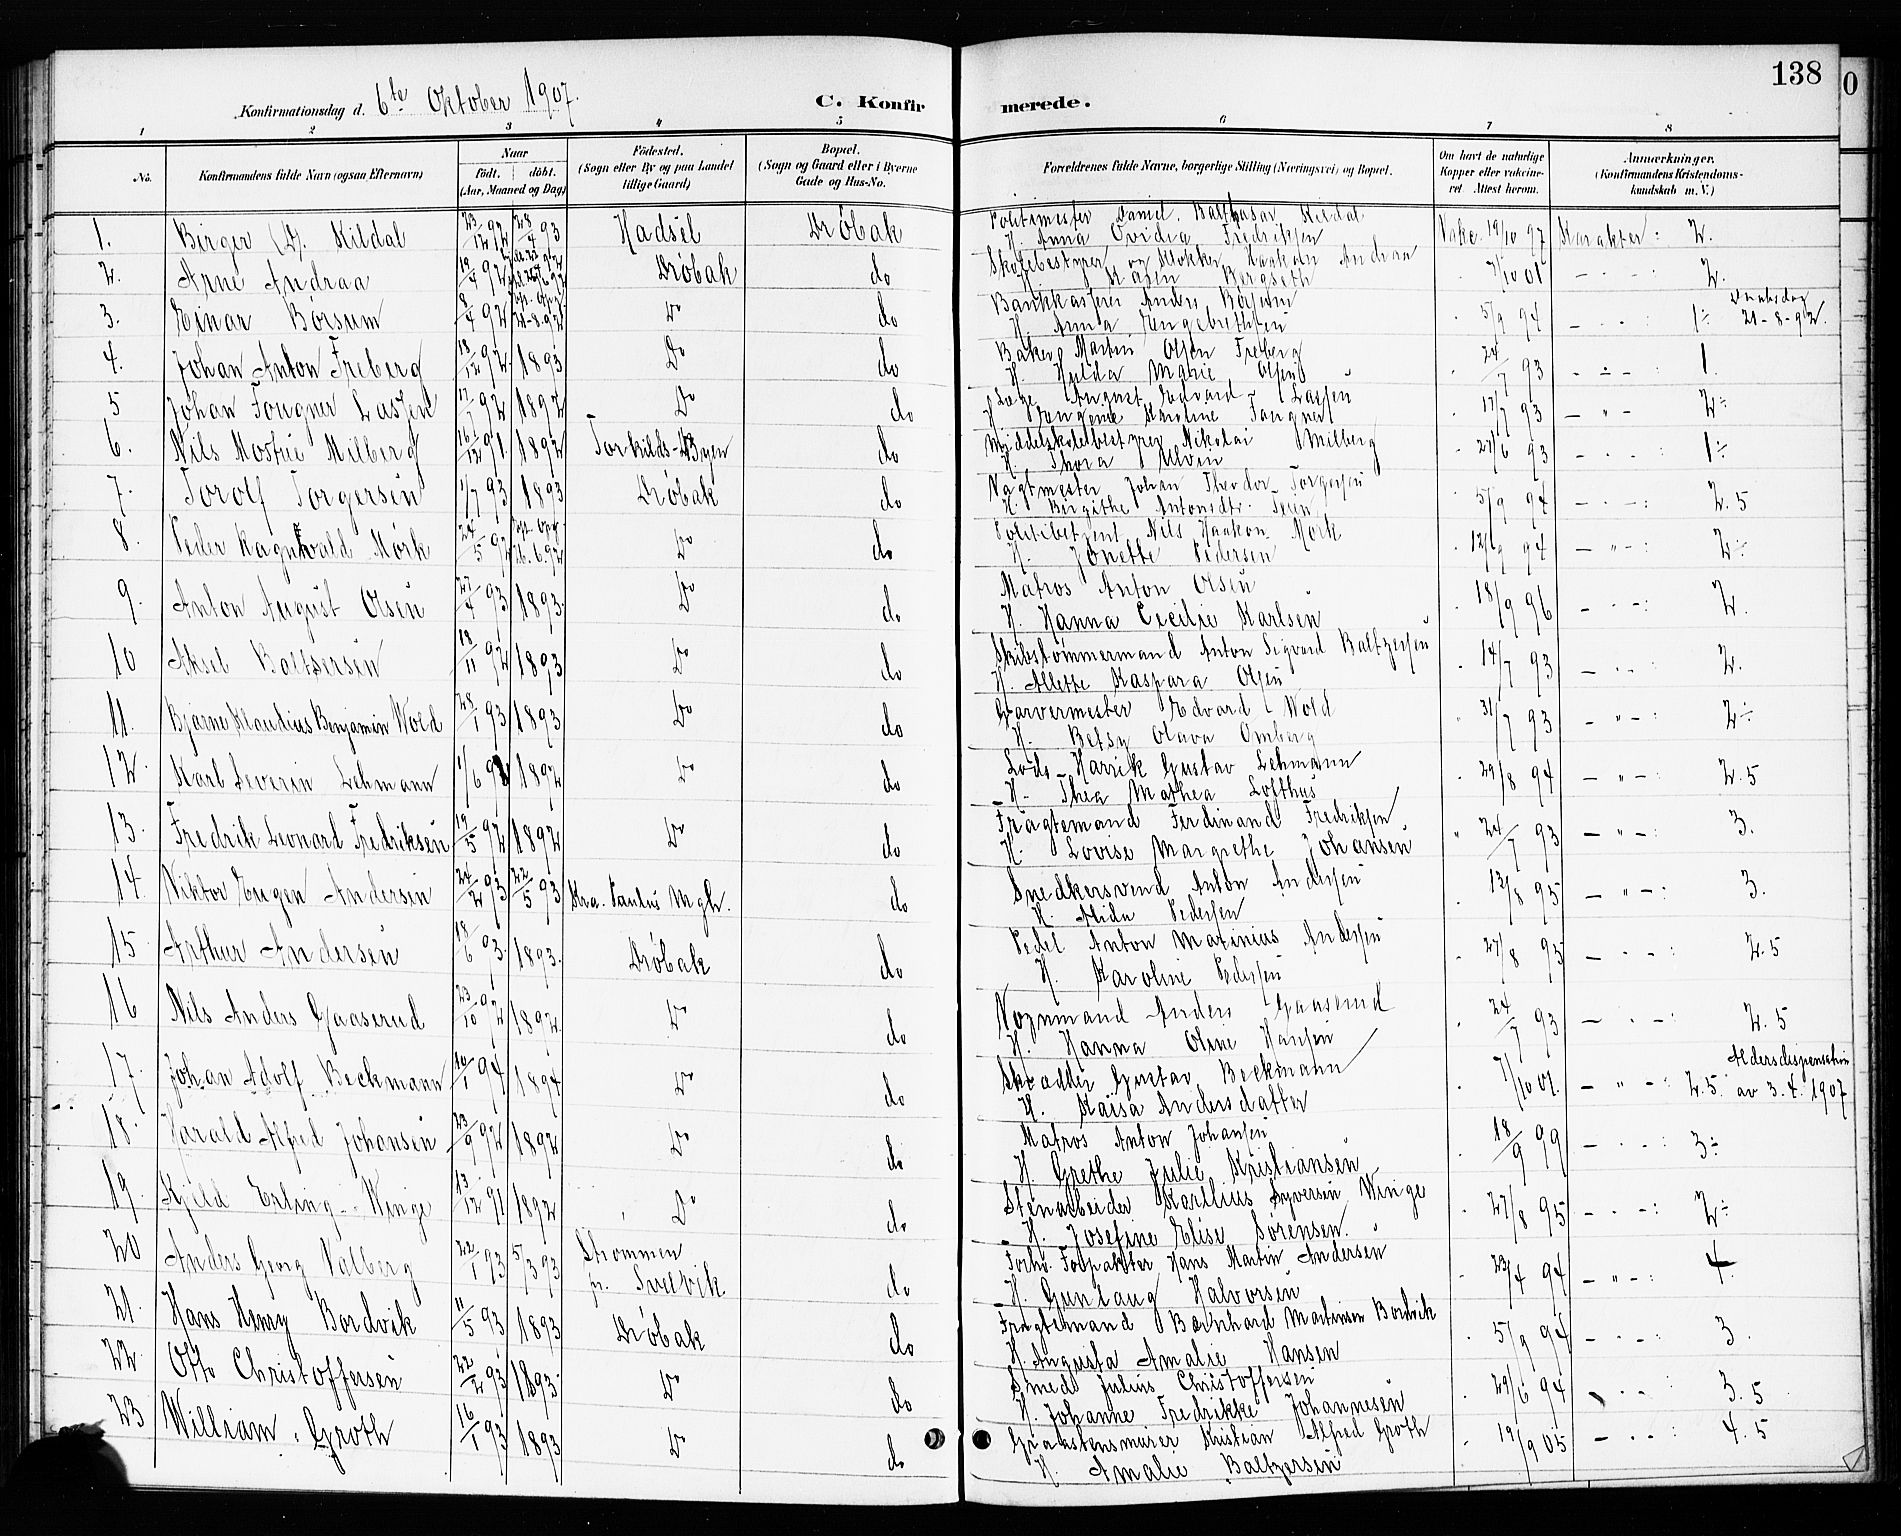 138
Konfirmationsdag d. 6te Oktober 1907.
C. Konfirmerede.
1 2 3 4 5 6 7 8
No.
Konfirmandens fulde Navn (ogsaa Efternavn)
Naar
födt. döbt.
(Aar, Maaned og Dag)
Födested.
(Sogn eller By og paa Landet
tillige Gaard)
Bopæl.
(Sogn og Gaard eller i Byerne
Gade og Hus-No.
Forældrenes fulde Navne, borgerlige Stilling (Næringsvei) og Bopæl.
Om havt de naturlige
Kopper eller vaccineret Attest herom.
Anmærkninger.
(Konfirmandens Kristendomskundskab m. V.)
1. Birger (D). Kildal 23/12 92 23/4 93 Hadsel Drøbak
Politimester Daniel Balthasar Kildal
H. Anna Ovidia Fredriksen
Vakc. 19/10 97 Karakter: 2.
2. Arne Andraa 19/4 92 Drøbak do
Skolebestyrer og Klokker Haakon Andraa
Karen Bergseth
7/10 01 2.
3. Einar Børsum 8/4 92 21-8-92 Do do
Bankkasserer Anders Børsum
H. Anna Engebrethsen
5/9 94 1÷ Daabsdag
21-8-92.
4. Johan Anton Freberg 18/12 92 1893 Do do
Baker Martin Olsen Freberg
H. Hulda Marie Olsen
24/7 93 1.
5 Johan Fougner Lassen 17/7 92 1892 Do do
Læge August Edvard Lassen
H. Eugenie Karoline Fougner
17/7 93 2÷
6. Nils Mostue Milberg 16/12 91. 1892 Torkilds-Byen do
Middelskolebestyrer Nikolai Milberg
H. Thora Ulvin
27/6 93 1÷
7. Torolf Torgersen 1/7 93 1893 Drøbak do
Vagtmester Johan Theodor Torgersen
H. Birgithe Antonsdtr.
5/9 94 2.5
8. Peder Ragnvald Mørk 24/5 92 26.6.92 Do do
Politibetjent Nils Haakon Mørk
H. Jonette Pedersen
12/9 94 2÷
9. Anton August Olsen 27/4 93 1893. Do do
Matros Anton Olsen
H. Hanna Cecilie Karlsen
18/9 96 2.
10 Aksel Baltsersen 18/11 92 1893 Do do
Skibstømmermand Anton Sigvard Baltzersen
H. Allette Kaspara Olsen
14/7 93 2.
11. Bjarne Klaudius Benjamin Wold 28/1 93 1893 Do do
Garvermester Edvard Wold
H. Betsy Olava Omberg
31/7 93 2÷
12. Karl Severin Lehmann 1/6 92 1892 Do do
Lods Henrik Gustav Lehmann
H. Thea Mathea Lofthus
29/8 94 2.5
13. Fredrik Leonard Fredriksen 19/5 92 1892 Do do
Fragtemand Ferdinand Fredriksen
H. Lovise Margrethe Johansen
24/7 93 3.
14. Viktor Eugen Andersen 24/2 93 22/5 93 Kra. Paulus Mgh. do
Snedkersvend Anton Andersen
H. Alida Pedersen
12/8 95 3.
15 Arthur Andersen 18/6 93. 1893. Drøbak do
Pedel Anton Matinius Andersen
H. Karoline Pedersen
27/8 95 2.5
16 Nils Anders Gaaserud 23/10 92 1892. Do do
Vognmand Anders Gaaserud
H. Hanna Oline Hansen
24/7 93 2.5
17. Johan Adolf Beckmann 10/1 94 1894 Do do
Skrædder Gustav Beckmann
H. Kaisa Andersdatter
7/10 01. 2.5. Aldersdispensation
av 3.4.1907
18. Harald Alfred Johansen 23/9 92 1892 Do do
Matros Anton Johansen
H. Grethe Julie Kristiansen
18/9 99 3÷
19. Kjeld Erling Winge 13/12 91 1892 Do do
Stenarbeider Karllius Syversen Winge
H. Josefine Elise Sørensen.
27/8 95 2÷
20 Anders Georg Valberg 22/1 93 5/3 93 Strømmen
pr. Svelvik do
Forhv. Forpagter Hans Martin Andersen
H. Gunlaug Halvorsen
23/4 94 4.
21. Hans Henry Bordvik 11/5 93 1893 Drøbak do
Fragtemand Bernhard Martinsen Bordvik
H. Augusta Amalie Hansen
5/9 94 3.
22 Otto Christoffersen 22/2 93 1893 Do do
Smed Julius Christoffersen
H. Johanne Fredrikke Johannesen
29/6 94 3.5
23 William Groth 16/1 93 1893 Do do
Graastensmurer Kristian Alfred Groth
H. Amalie Baltzersen
19/9 05 4.5